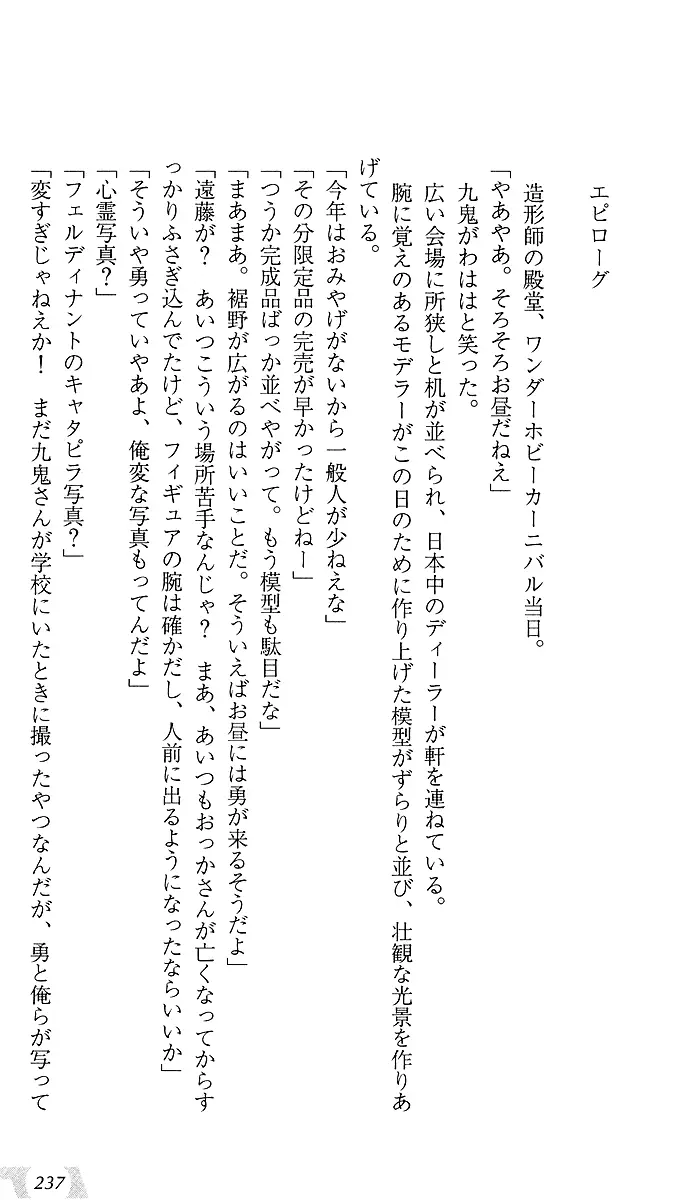 エピローグ
造形師の殿堂、ワンダーホビーカーニバル当日。
「やあやあ。そろそろお昼だねえ」
九鬼がわははと笑った。
広い会場に所狭しと机が並べられ、日本中のディーラーが軒を連ねている。
腕に覚えのあるモデラーがこの日のために作り上げた模型がずらりと並び、壮観な光景を作りあ
げている。
「今年はおみやげがないから一般人が少ねえな」
「その分限定品の完売が早かったけどねー」
「つうか完成品ばっか並べやがって。もう模型も駄目だな」
「まあまあ。裾野が広がるのはいいことだ。そういえばお昼には勇が来るそうだよ」
「遠藤が？　あいつこういう場所苦手なんじゃ？　まあ、あいつもおっかさんが亡くなってからす
っかりふさぎ込んでたけど、フィギュアの腕は確かだし、人前に出るようになったならいいか」
「そういや勇っていやあよ、俺変な写真もってんだよ」
「心霊写真？」
「フェルディナントのキャタピラ写真？」
「変すぎじゃねえか！　まだ九鬼さんが学校にいたときに撮ったやつなんだが、勇と俺らが写って
237